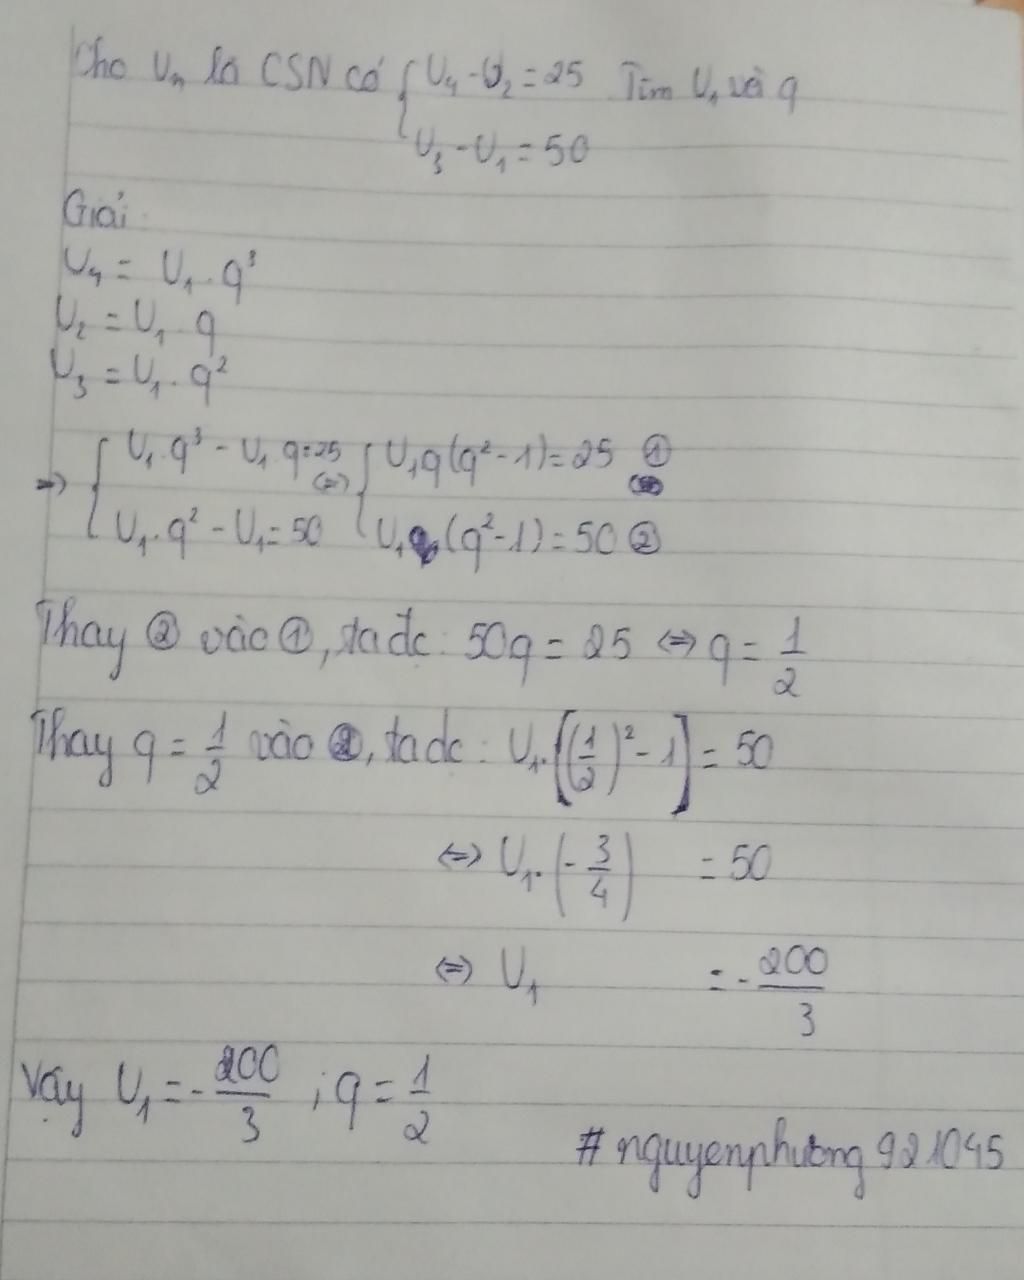 Cho Uₙ là CSN có { U₄ - U₂ = 25 Tìm U₁ và q
U₃ - U₁ = 50
Giải:
U₄ = U₁ . q³
U₂ = U₁ . q
U₃ = U₁ . q²
=> { U₁ . q³ - U₁ . q = 25 <=> { U₁q(q² - 1) = 25 ①
U₁ . q² - U₁ = 50 U₁ (q² - 1) = 50 ②
Thay ② vào ①, ta đc: 50q = 25 <=> q = 1/2
Thay q = 1/2 vào ②, ta đc: U₁ . [(1/2)² - 1] = 50
<=> U₁ . (-3/4) = 50
<=> U₁ = -200/3
Vậy U₁ = -200/3 ; q = 1/2
# nguyenphuong921045